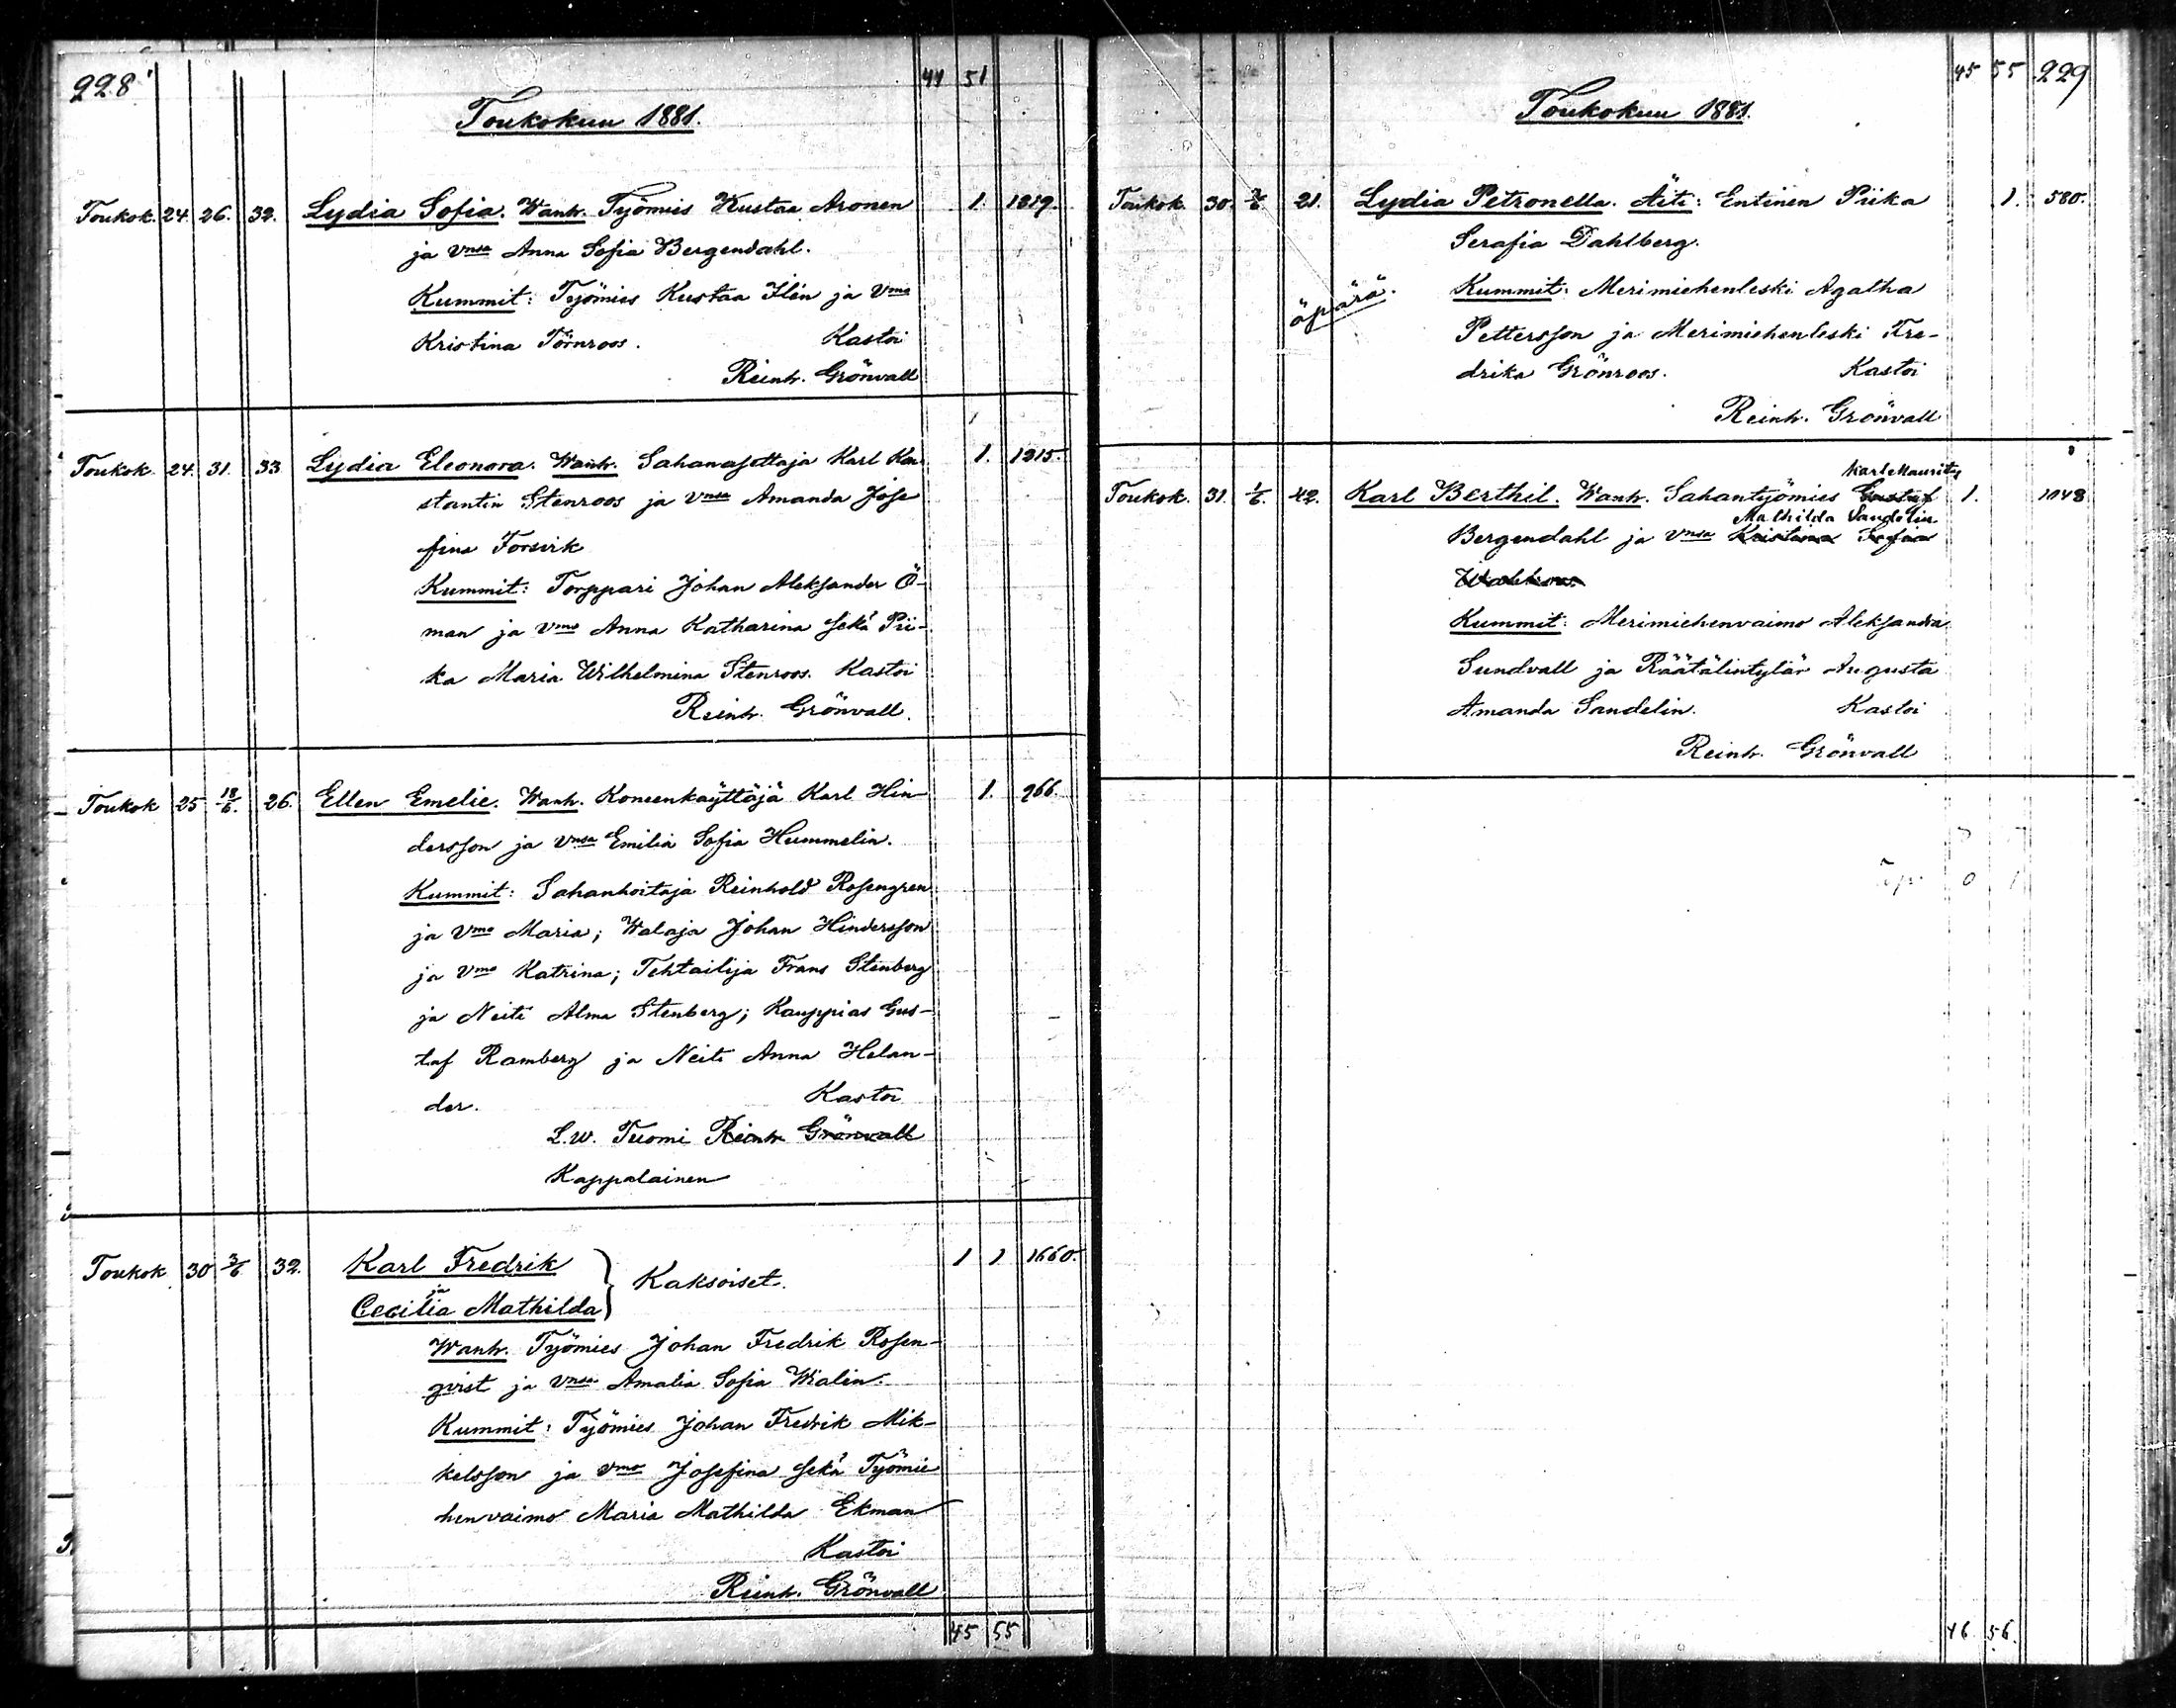 228
44 51
Toukokuu 1881.
Toukok. 24. 26. 32. Lydia Sofia. Wanh. Työmies Kustaa Aronen 1. 1219.
ja vmsa Anna Sofia Bergendahl.
Kummit: Työmies Kustaa Ilén ja Vmo
Kristina Törnroos. Kastoi
Reinh. Grönvall
Toukok. 24. 31. 33 Lydia Eleonora. Wanh. Sahanasettaja Karl Kon- 1. 1215.
stantin Stenroos ja vmsa Amanda Jose
fina Forsvik
Kummit: Torppari Johan Aleksander Ö-
man ja vmo Anna Katharina sekä Pii-
ka Maria Wilhelmina Stenroos. Kastoi
Reinh. Grönvall.
Toukok 25 18/6. 26. Ellen Emelie. Wanh. Koneenkäyttäjä Karl Hin- 1. 966.
dersson ja vmsa Emilia Sofia Hummelin.
Kummit: Sahanhoitaja Reinhold Rosengren
ja vmo Maria; Walaja Johan Hindersson
ja vmo Katrina; Tehtailija Frans Stenberg
ja Neiti Alma Stenberg; Kauppias Gus-
taf Ramberg ja Neiti Anna Helan-
der. Kastoi
L.W. Tuomi Reinh. Grönvall
Kappalainen
Toukok 30 3/6. 32. Karl Fredrik 1 1 1660.
ja Kaksoiset.
Cecilia Mathilda
Wanh. Työmies Johan Fredrik Rosen-
qvist ja vmsa Amalia Sofia Walin.
Kummit: Työmies Johan Fredrik Mik-
kelsson ja vmo Josefina sekä Työmie
henvaimo Maria Mathilda Ekman
Kastoi
Reinh. Grönvall
45 55
45 55 229
Toukokuu 1881.
Toukok. 30. 21. Lydia Petronella. Äiti: Entinen Piika 1. 580.
Serafia Dahlberg.
äpärä. Kummit: Merimiehenleski Agatha
Pettersson ja Merimiehenleski Fre-
drika Grönroos. Kastoi
Reinh. Grönvall
Karl Mauritz
Toukok. 31. 1/6. 42. Karl Berthil. Wanh. Sahantyömies Gustaf 1. 1048
Mathilda Sandelin
Bergendahl ja vmsa Kristina Sofia
Kummit: Merimiehenvaimo Aleksandra
Sundvall ja Räätälintytär Augusta
Amanda Sandelin. Kastoi
Reinh. Grönvall
0 1
46 56.